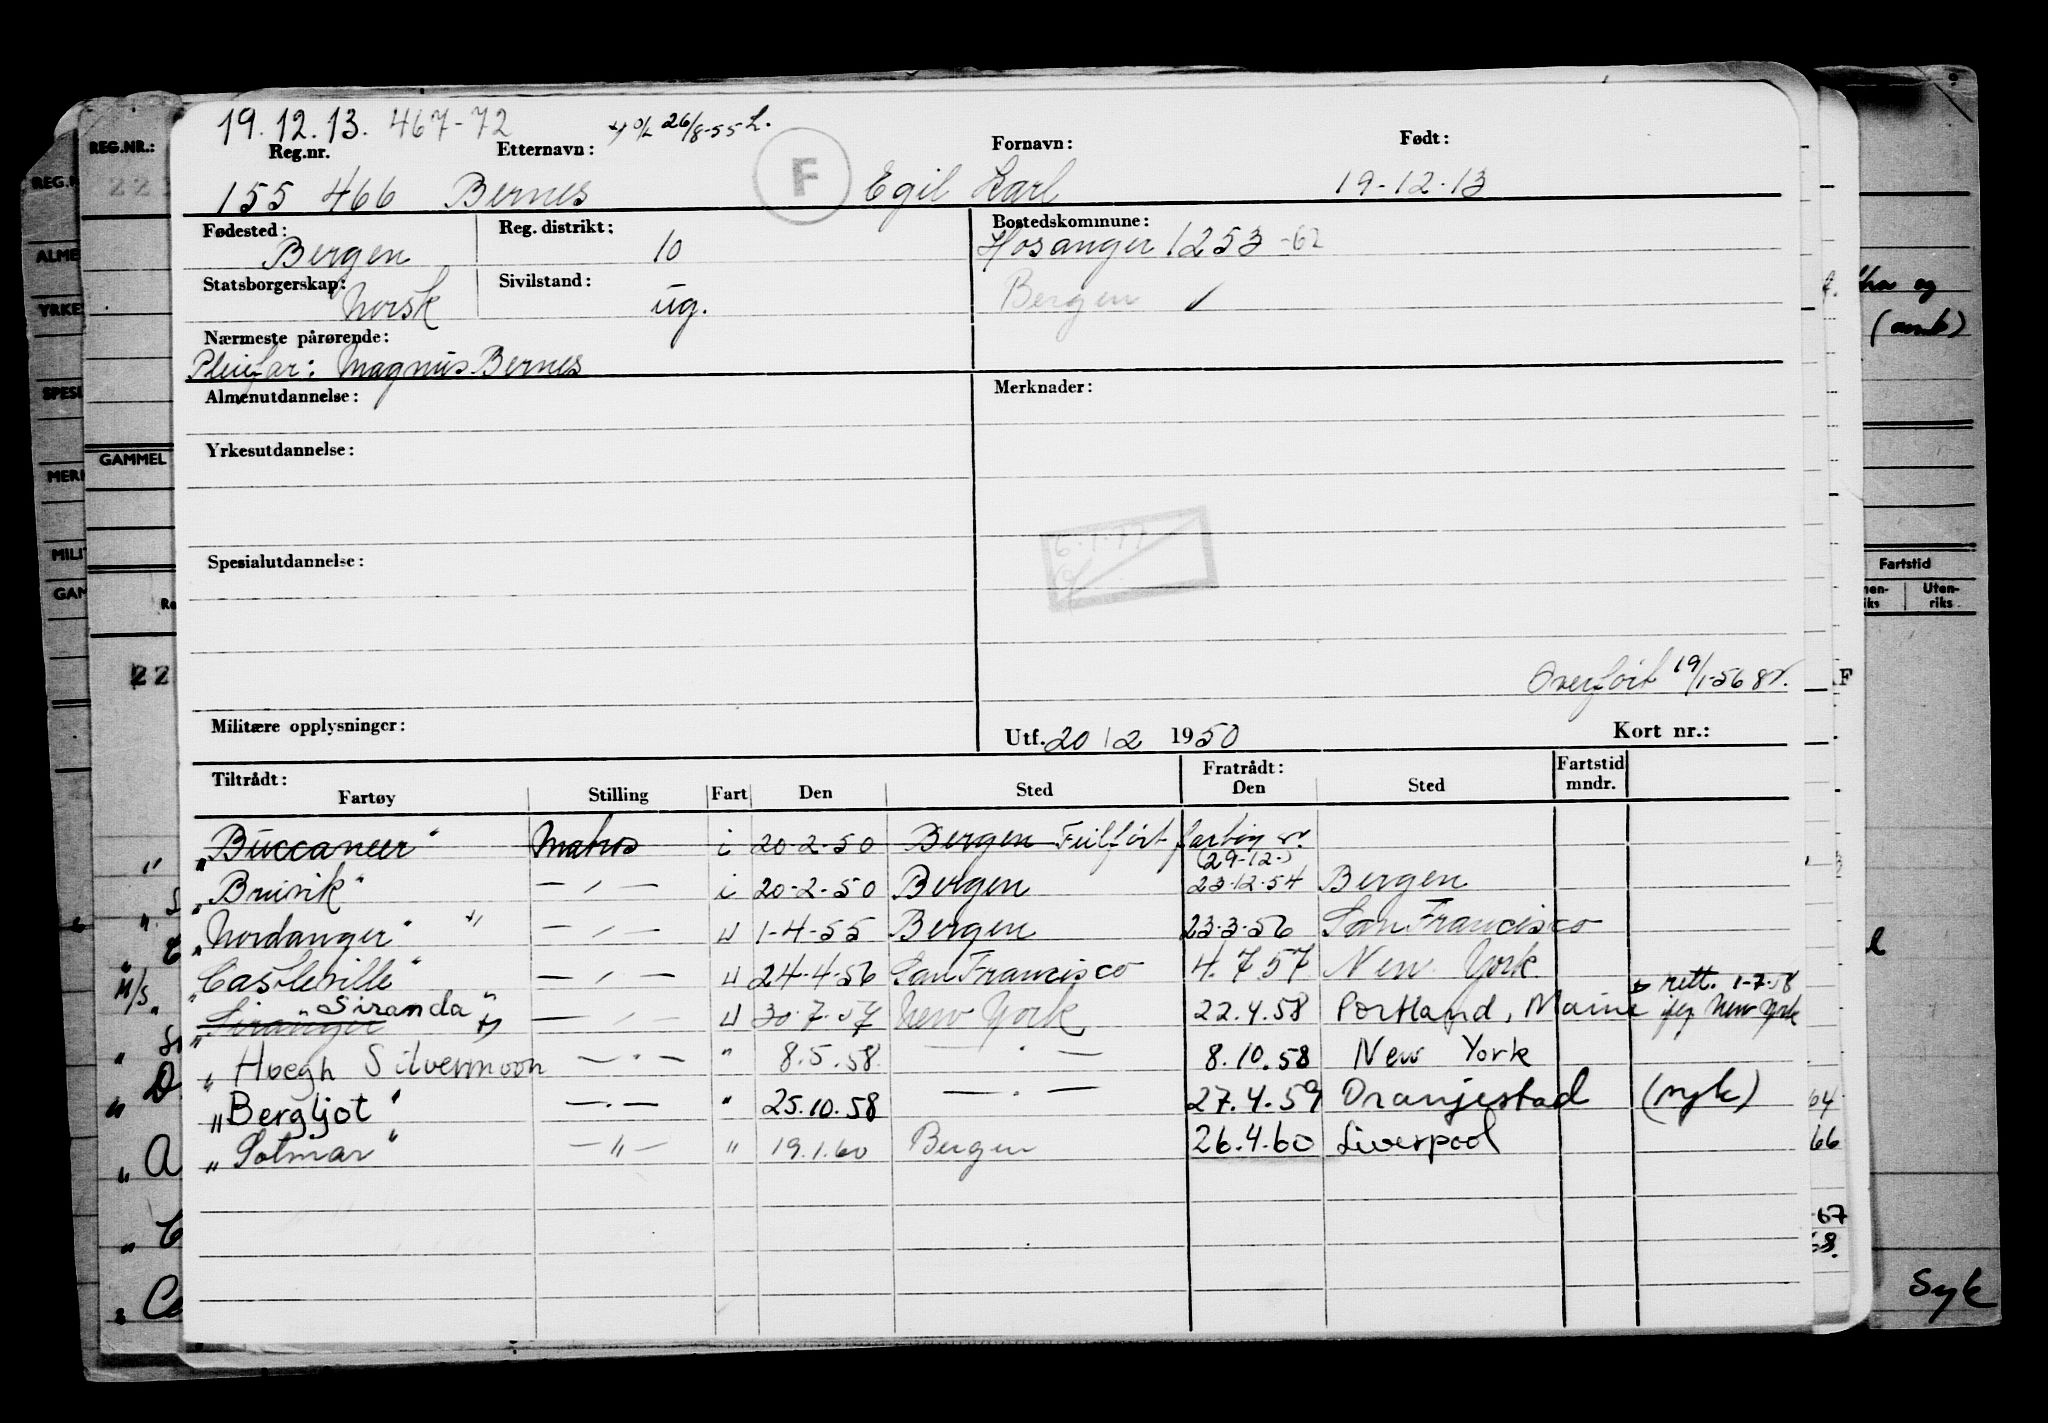 19.12.13. 467-72 26/8-55 L.
Reg.nr. Etternavn: F Fornavn: Født:
155 466 Bernes Egil Karl 19-12-13
Fødested: Reg. distrikt: Bostedskommune:
Bergen 10 Hosanger 1253 -62
Statsborgerskap: Sivilstand: Bergen
Norsk ug.
Nærmeste pårørende:
Pleiefar: Magnus Bernes
Almenutdannelse: Merknader:
Yrkesutdannelse:
6.1.77
Spesialutdannelse:
Overført 19/1-56
Militære opplysninger: Utf. 20/2 1950 Kort nr.:
Tiltrådt: Fratrådt: Fartstid
Fartøy Stilling Fart Den Sted Den Sted mndr.
"Buccaneer" Matros i 20-2-50 Bergen Feilført fartøy
(29-12-)
"Bruvik" — " — i 20-2-50 Bergen 23-12-54 Bergen
"Nordanger" — " — U 1-4-55 Bergen 23-3-56 San Francisco
"Castleville" — " — U 24-4-56 San Francisco 4.7 57 New York
rett. 1-7-58
"Siranger" Siranda" — " — U 30-7-57 New York 22.4.58 Portland, Maine New York
" Hoegh Silvermoon — " — " 8.5.58. — " — 8.10.58 New York
"Bergljot" — " — " 25.10.58 — " — 27.4.59 Oranjestad (syk)
"Solmar" — " — " 19.1.60 Bergen 26.4.60 Liverpool
REG.NR.:
GAMMEL
Fartstid
Uten-
riks
64
66
67
68.
Syk